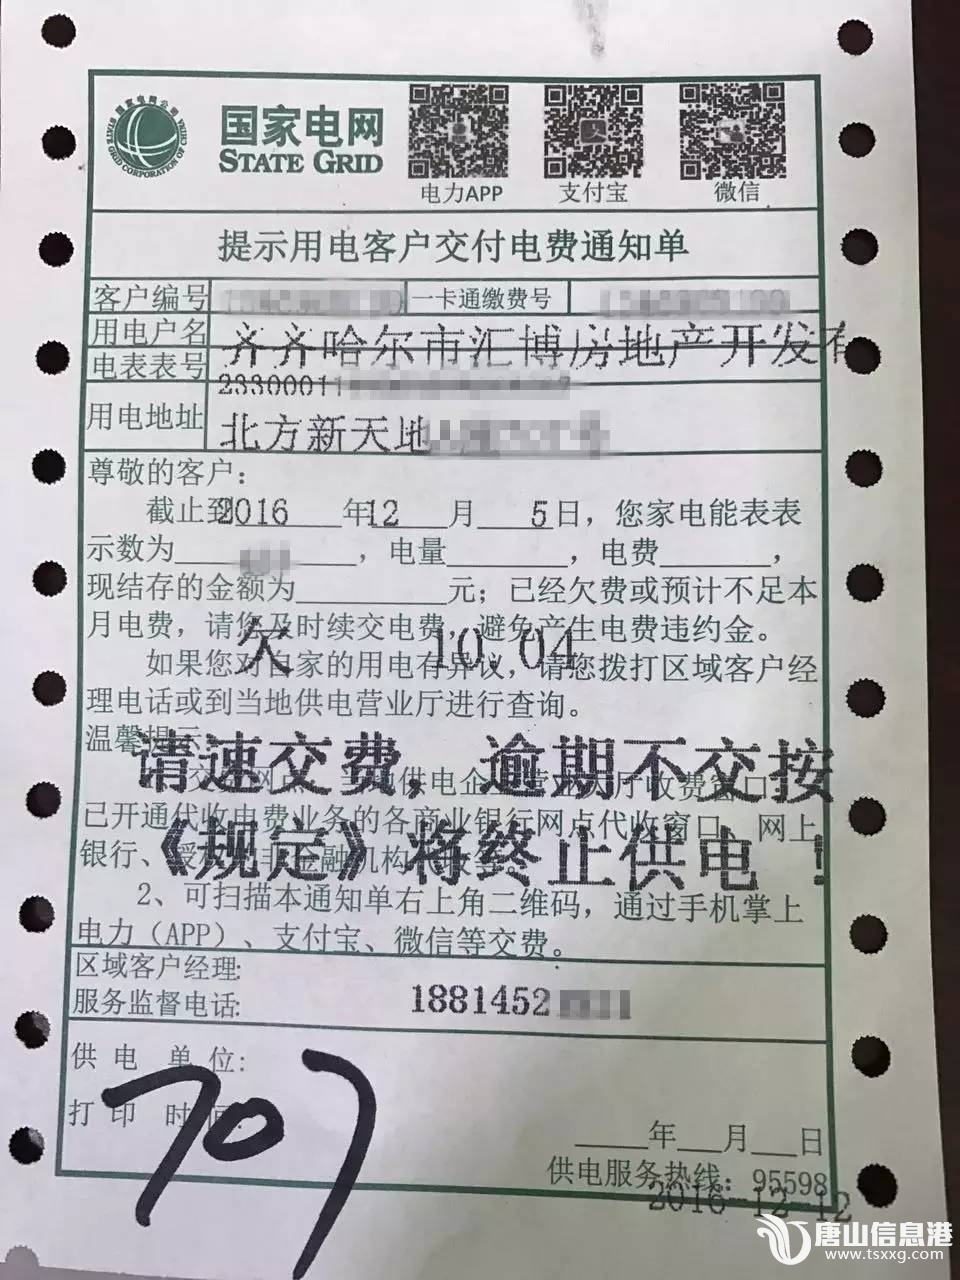 国家电网
STATE GRID
STATE GRID CORPORATION OF CHINA 国家电网公司
电力APP 支付宝 微信
提示用电客户交付电费通知单
客户编号 一卡通缴费号
用电户名 齐齐哈尔市汇博房地产开发有
电表表号 2330001
用电地址 北方新天地
尊敬的客户：
截止到2016年12月5日，您家电能表表
示数为，电量，电费，
现结存的金额为元；已经欠费或预计不足本
月电费，请您及时续交电费，避免产生电费违约金。
欠 10.04
如果您对自家的用电有异议，请您拨打区域客户经
理电话或到当地供电营业厅进行查询。
温馨提示：
请速交费，逾期不交按
供电企 厅收费窗口
已开通代收电费业务的各商业银行网点代收窗口、网上
《规定》将终止供电！
银行、 非金融机构
2、可扫描本通知单右上角二维码，通过手机掌上
电力（APP）、支付宝、微信等交费。
区域客户经理:
服务监督电话: 1881452
供电单位:
打印时间:
707
年月日
供电服务热线: 95598
2016-12-12
唐山信息港
www.tsxxg.com